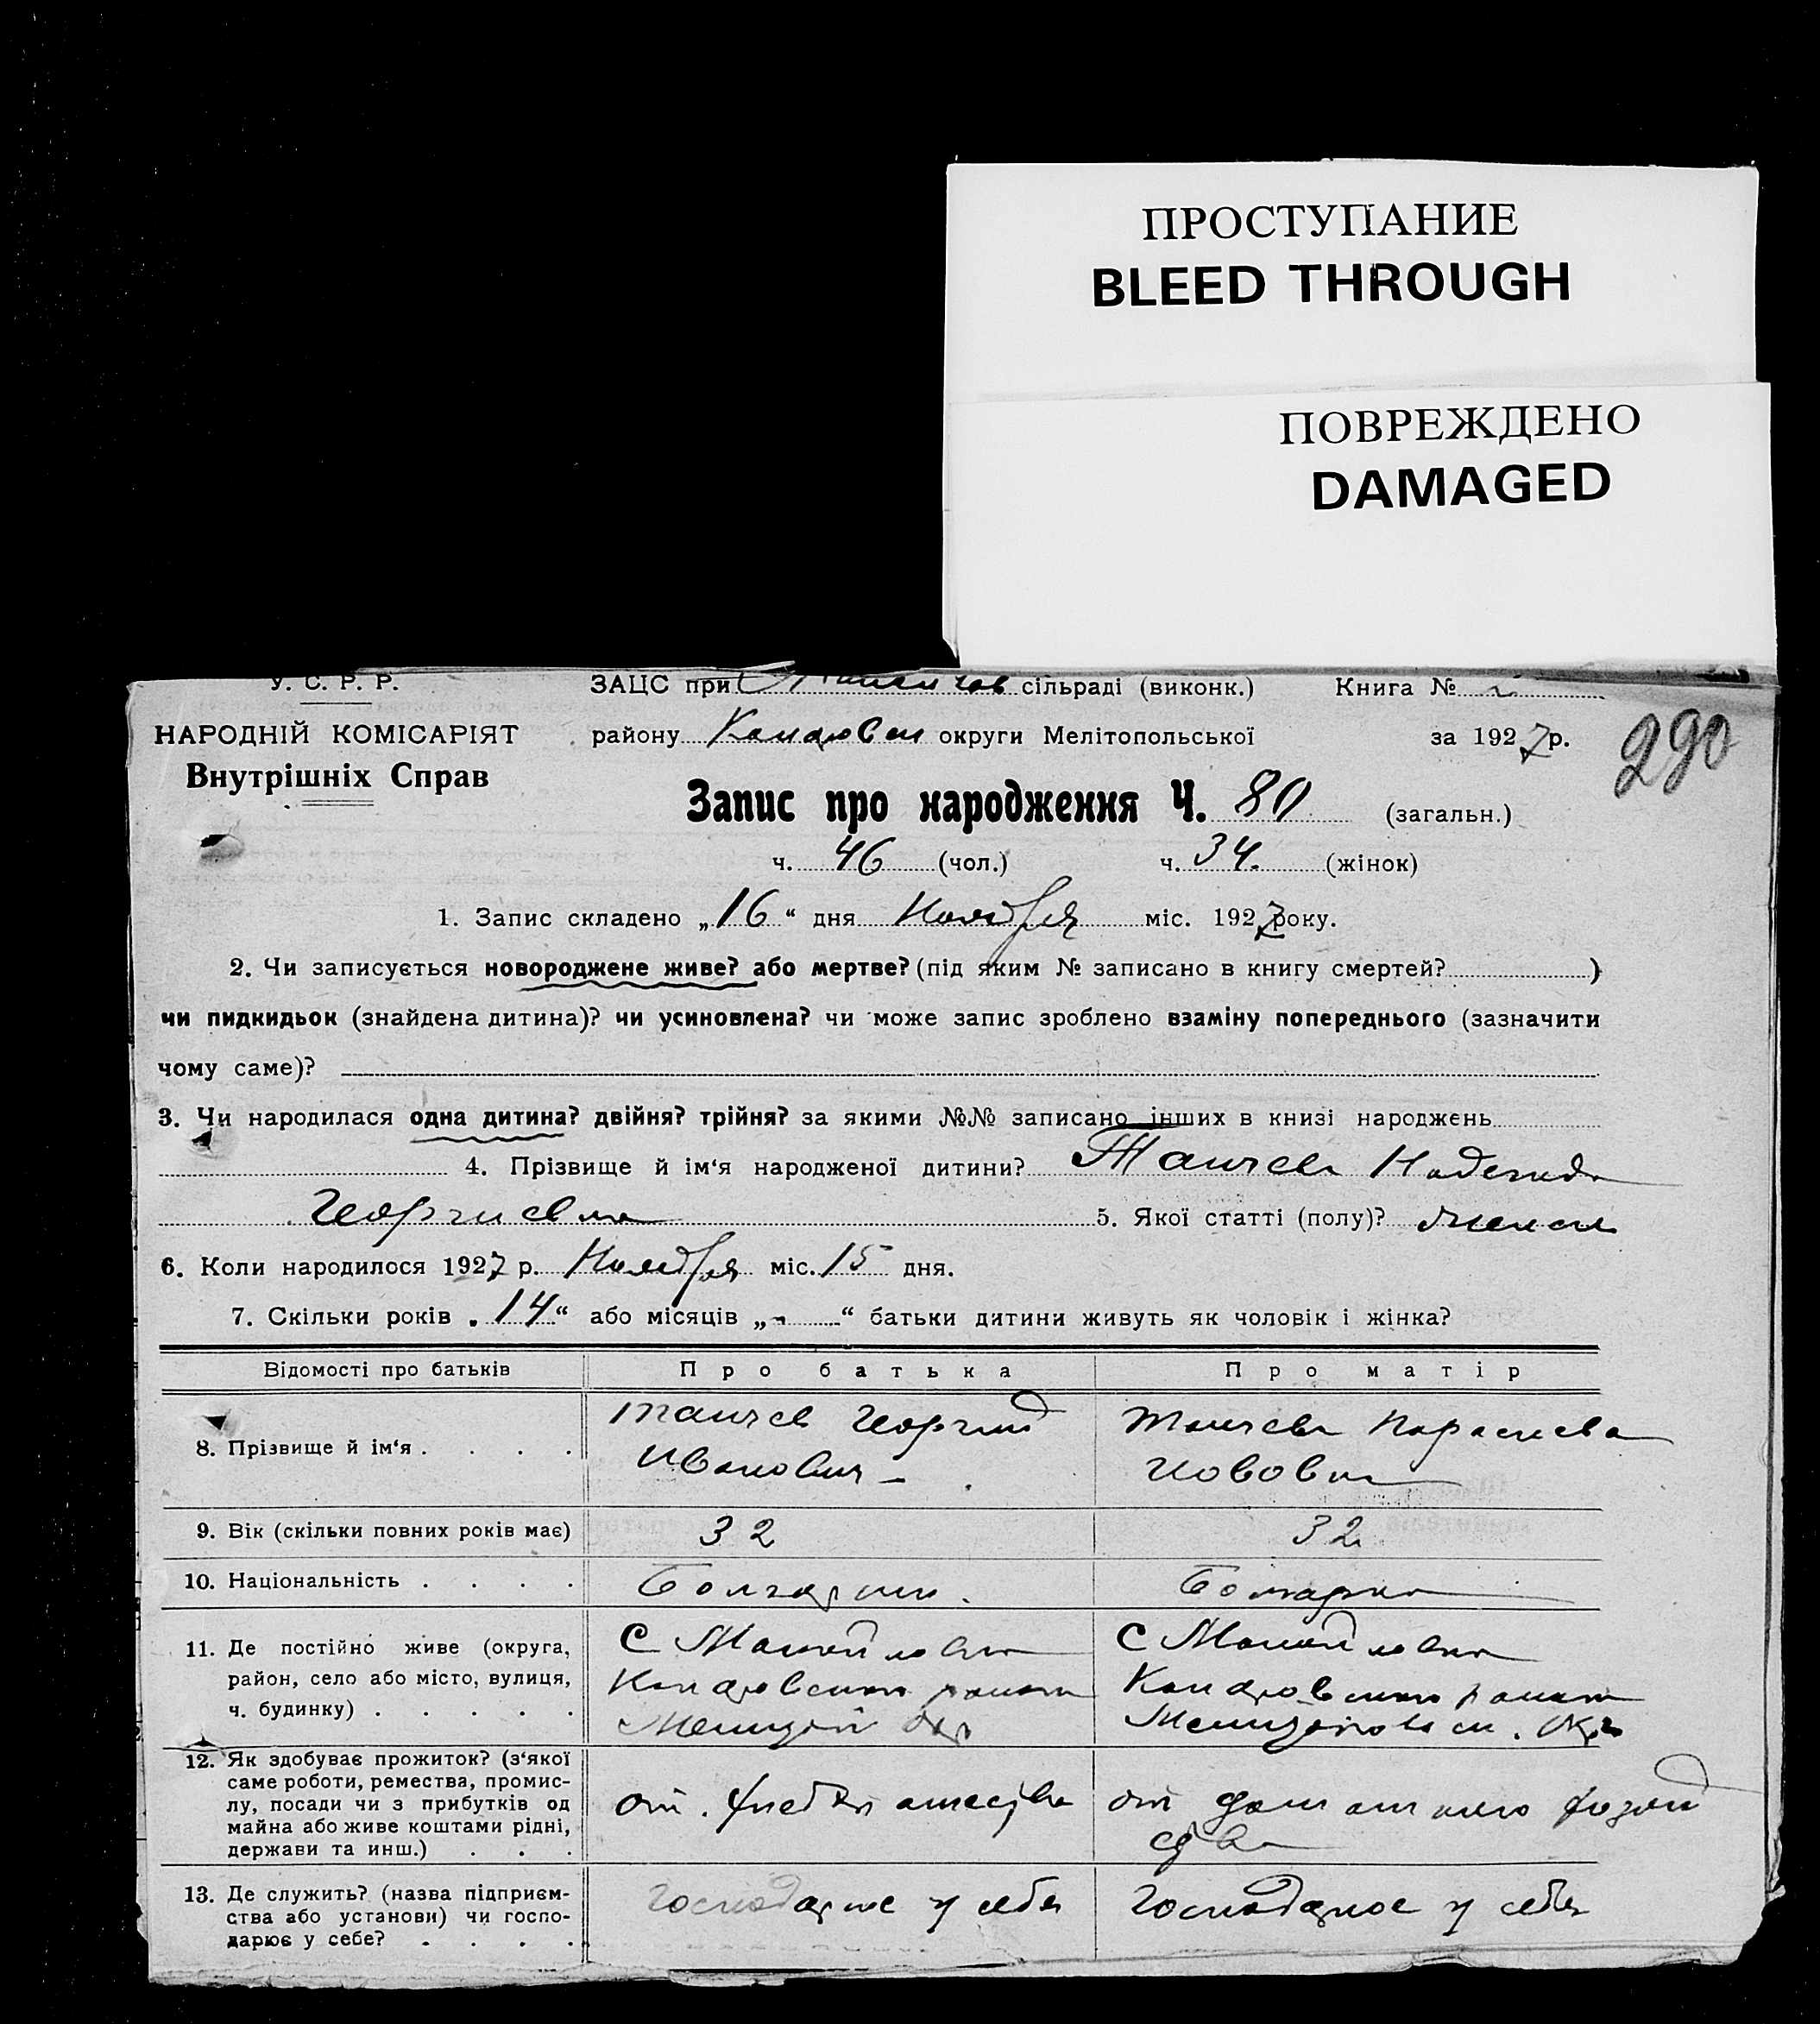 ПРОСТУПАНИЕ
BLEED THROUGH
ПОВРЕЖДЕНО
DAMAGED
У. С. Р. Р.
ЗАЦС при сільраді (виконк.) Книга №
НАРОДНІЙ КОМІСАРІЯТ
району округи Мелітопольської за 1927 р.
290
Внутрішніх Справ
Запис про народження Ч. 80 (загальн.)
ч. 46 (чол.) ч. 34. (жінок)
1. Запис складено „16“ дня Ноября міс. 1927 року.
2. Чи записується новороджене живе? або мертве? (під яким № записано в книгу смертей? )
чи пидкидьок (знайдена дитина)? чи усиновлена? чи може запис зроблено взаміну попереднього (зазначити
чому саме)?
3. Чи народилася одна дитина? двійня? трійня? за якими №№ записано інших в книзі народжень
4. Прізвище й ім‘я народженої дитини? Танчева Надежда
Георгиевна 5. Якої статті (полу)?
6. Коли народилося 1927 р. Ноября міс. 15 дня.
7. Скільки років „14“ або місяців „-“ батьки дитини живуть як чоловік і жінка?
Відомості про батьків Про батька Про матір
8. Прізвище й ім‘я . . . .
Танчев Георгий
Иванович
Танчева Параскева
Иовов
9. Вік (скільки повних років має) 32 32
10. Національність . . . . Болгарин. Болгарка
11. Де постійно живе (округа,
район, село або місто, вулиця,
ч. будинку) . . . . .
С Мануйловка
района
С Мануйловка
района
12. Як здобуває прожиток? (з‘якої
саме роботи, ремества, промис-
лу, посади чи з прибутків од
майна або живе коштами рідні,
держави та инш.) . . .
от
от
13. Де служить? (назва підприєм-
ства або установи) чи госпо-
дарює у себе? . . . .
Господарює у себя
Господарює у себя